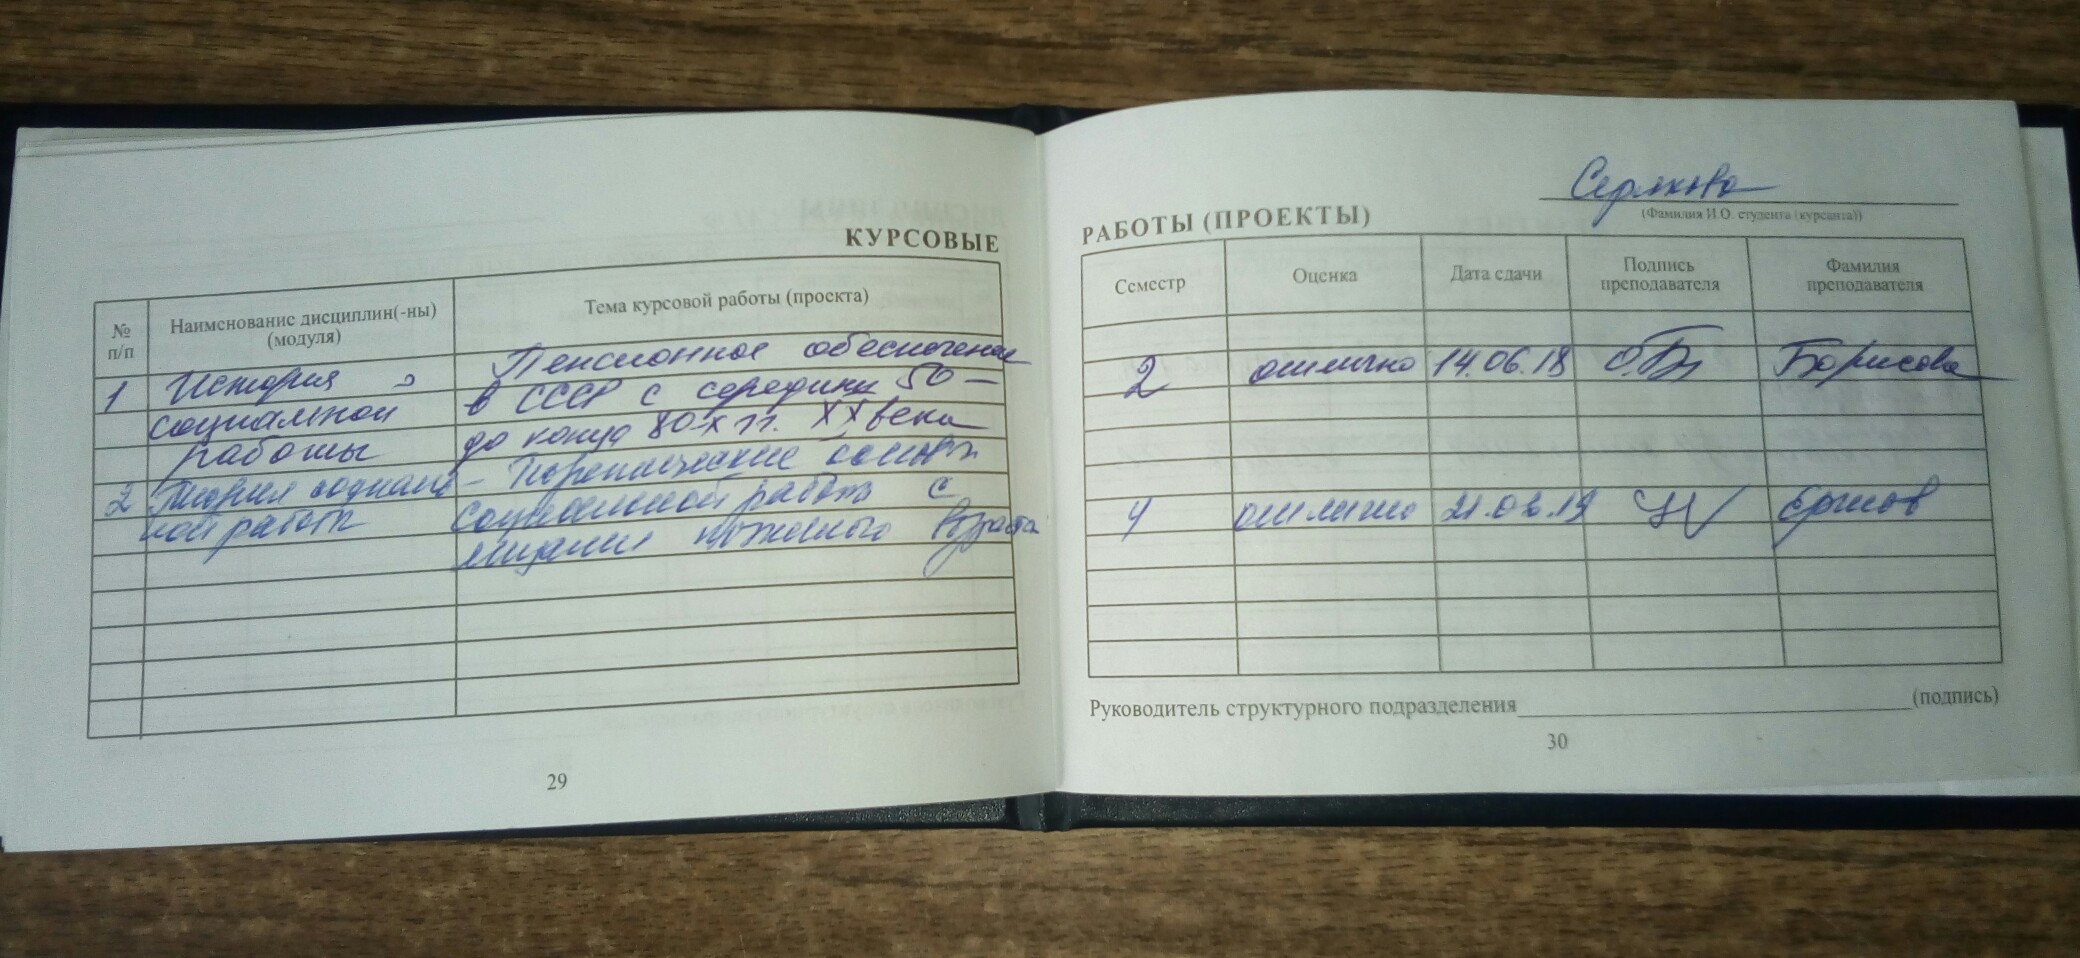 КУРСОВЫЕ
№ п/п
Наименование дисциплин(-ны) (модуля)
Тема курсовой работы (проекта)
1 История Пенсионное обеспечение
социальной в СССР с середины 50 –
работы до конца 80-х гг. XX века
2 Теория социаль- Теоретические основы
ной работы социальной работы с
лицами пожилого возраста
29
Серякова
(Фамилия И.О. студента (курсанта))
РАБОТЫ (ПРОЕКТЫ)
Семестр
Оценка
Дата сдачи
Подпись преподавателя
Фамилия преподавателя
2 отлично 14.06.18 Борисова
4 отлично 21.02.19 Ершов
Руководитель структурного подразделения (подпись)
30